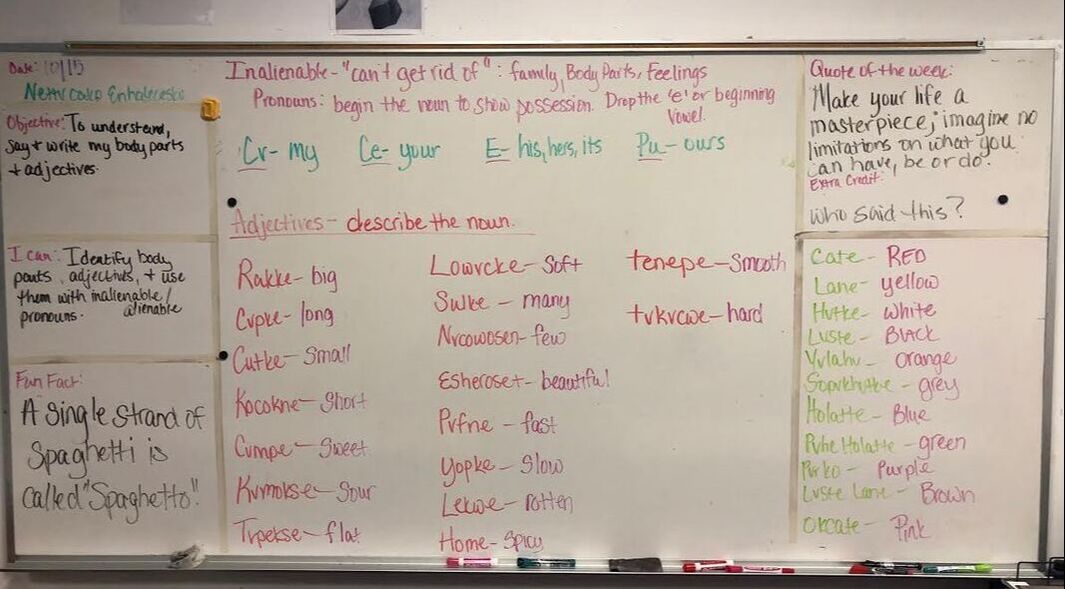 Date: 10/15
Nettv cakcv Enhvlecesko
Objective: To understand,
say + write my body parts
+ adjectives.
I can: Identify body
parts, adjectives, + use
them with inalienable/
alienable
pronouns.
Fun Fact:
A single strand of
Spaghetti is
called "Spaghetto."
Inalienable - "can't get rid of": family, Body Parts, Feelings
Pronouns: begin the noun to show possession. Drop the 'e' or beginning
vowel.
Cv- my Ce- your E- his, hers, its Pu- ours
Adjectives - describe the noun.
Rakke- big
Cvpke- long
Cutke- Small
Kocokne- Short
Cvmpe- Sweet
Kvmokse- Sour
Tvpekse- flat
Lowvcke- Soft
Sulke - many
Nvcowosen- few
Esheroset- beautiful
Pvfne - fast
Yopke- Slow
Lekwe- rotten
Home- Spicy
tenepe- Smooth
tvkvcwe- hard
Quote of the week:
Make your life a
masterpiece; imagine no
limitations on what you
can have, be or do.
Extra Credit:
who said this?
Cate- RED
Lane- yellow
Hvtke- white
Lvste- Black
Yvlahv- orange
Sopvkhvtke- grey
Holatte- Blue
Pvhe Holatte- green
Pvrko- Purple
Lvste Lane- Brown
Okcate- Pink